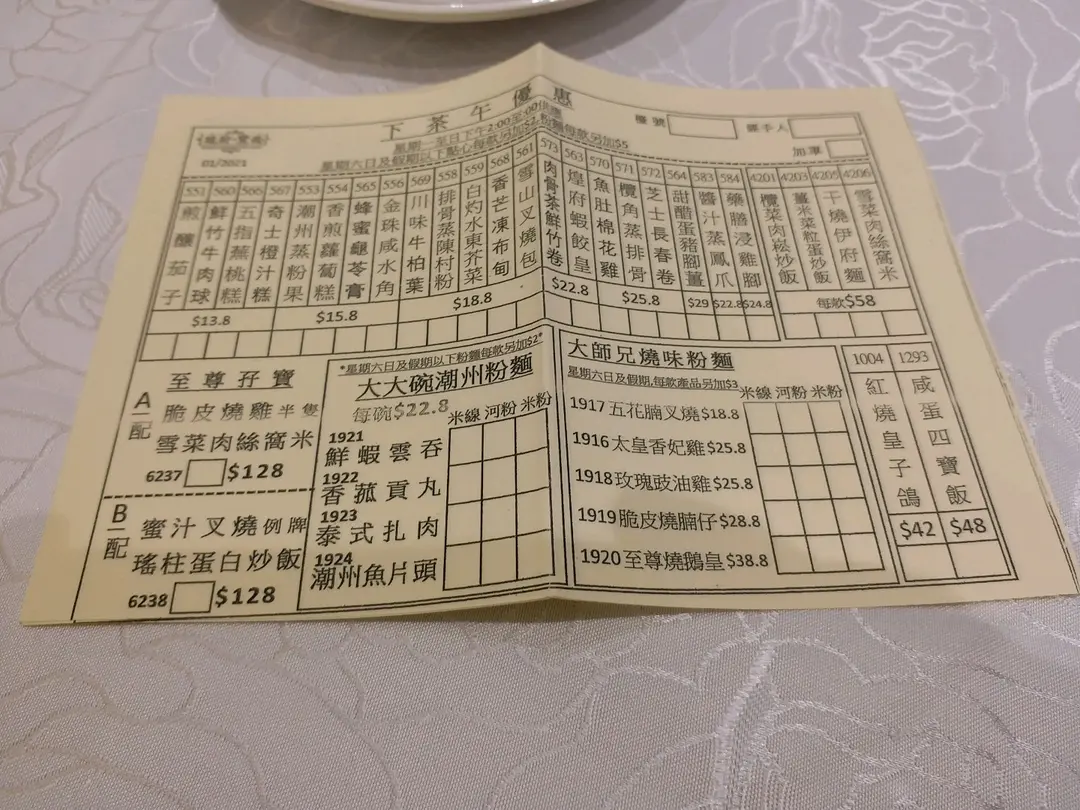 下茶午優惠
星期一至日下午2:00至5:00供應
星期六日及假期以下點心每款另加$2, 粉麵每款另加$5
01/2021
檯號
經手人
加單
551 煎釀茄子
560 鮮竹牛肉球
566 五指蕪桃糕
567 奇士橙汁糕
553 潮州蒸粉果
554 香煎蘿蔔糕
565 蜂蜜龜苓膏
556 金珠咸水角
569 川味牛柏葉
558 排骨蒸陳村粉
559 白灼水東芥菜
568 香芒凍布甸
561 雪山叉燒包
573 肉骨茶鮮竹卷
563 煌府蝦餃皇
570 魚肚棉花雞
571 欖角蒸排骨
572 芝士長春卷
564 甜醋蛋豬腳薑
583 醬汁蒸鳳爪
584 藥膳浸雞腳
4201 欖菜肉崧炒飯
4203 薑米菜粒蛋炒飯
4205 干燒伊府麵
4206 雪菜肉絲窩米
$13.8
$15.8
$18.8
$22.8
$25.8
$29
$22.8
$24.8
每款$58
A配
至尊孖寶
脆皮燒雞半隻
雪菜肉絲窩米
6237 $128
B配
蜜汁叉燒例牌
瑤柱蛋白炒飯
6238 $128
*星期六日及假期以下粉麵每款另加$2*
大大碗潮州粉麵
每碗$22.8
米線 河粉 米粉
1921
鮮蝦雲吞
1922
香菰貢丸
1923
泰式扎肉
1924
潮州魚片頭
大師兄燒味粉麵
星期六日及假期,每款產品另加$3
米線 河粉 米粉
1917 五花腩叉燒 $18.8
1916 太皇香妃雞 $25.8
1918 玫瑰豉油雞 $25.8
1919 脆皮燒腩仔 $28.8
1920 至尊燒鵝皇 $38.8
1004 紅燒皇子鴿 $42
1293 咸蛋四寶飯 $48